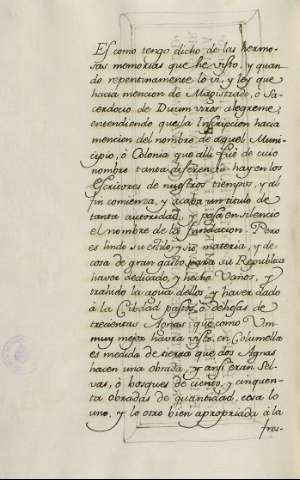 Es como tengo dicho de las hermo-
sas memorias que he visto, y quan-
do repentinamente lo vi, y leý que
hacia mencion de Magistrado, ó Sa-
cerdocio de Duum viros alegreme,
entendiendo que la Inscripcion hacia
mencion del nombre de aquel Muni-
cipio, ó Colonia que alli fue de cuio
nombre tanta diferencia hay en los
Escritores de nuestros tiempos, y al
fin comienza, y acaba un titulo de
tanta autoridad, y pasa en silencio
el nombre de la fundacion. Pero
es lindo su estilo, y su materia, y de
cosa de gran gasto para su Republica
haver dedicado, y hecho Vaños, y
trahido la agua dellos, y haver dado
à la Ciudad pastos, ó dehesas de
trecientas Agnas que como Vm
muy mejor havra visto en Columella
es medida de tierra que dos Agnas
hacen una obrada, y ansi eran Sel-
vas, ó bosques de ciento, y cinquen-
ta obradas de quantidad, cosa lo
uno, y lo otro bien apropriada à la
fres-